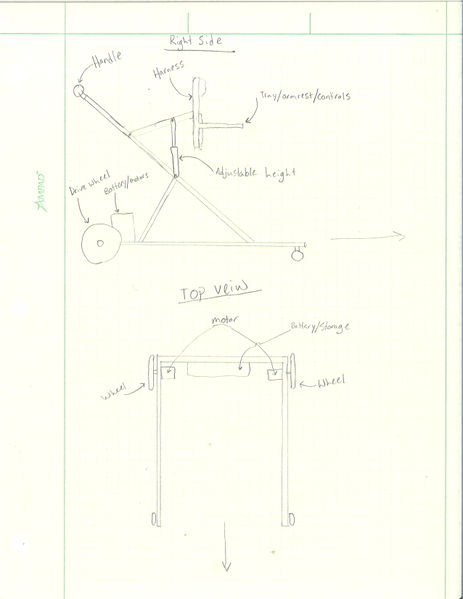 Right Side
Handle
Harness
Tray/armrest/controls
Adjustable height
Drive wheel
Battery/motors
AMPAD
TOP VEIW
motor
Battery/Storage
Wheel
Wheel